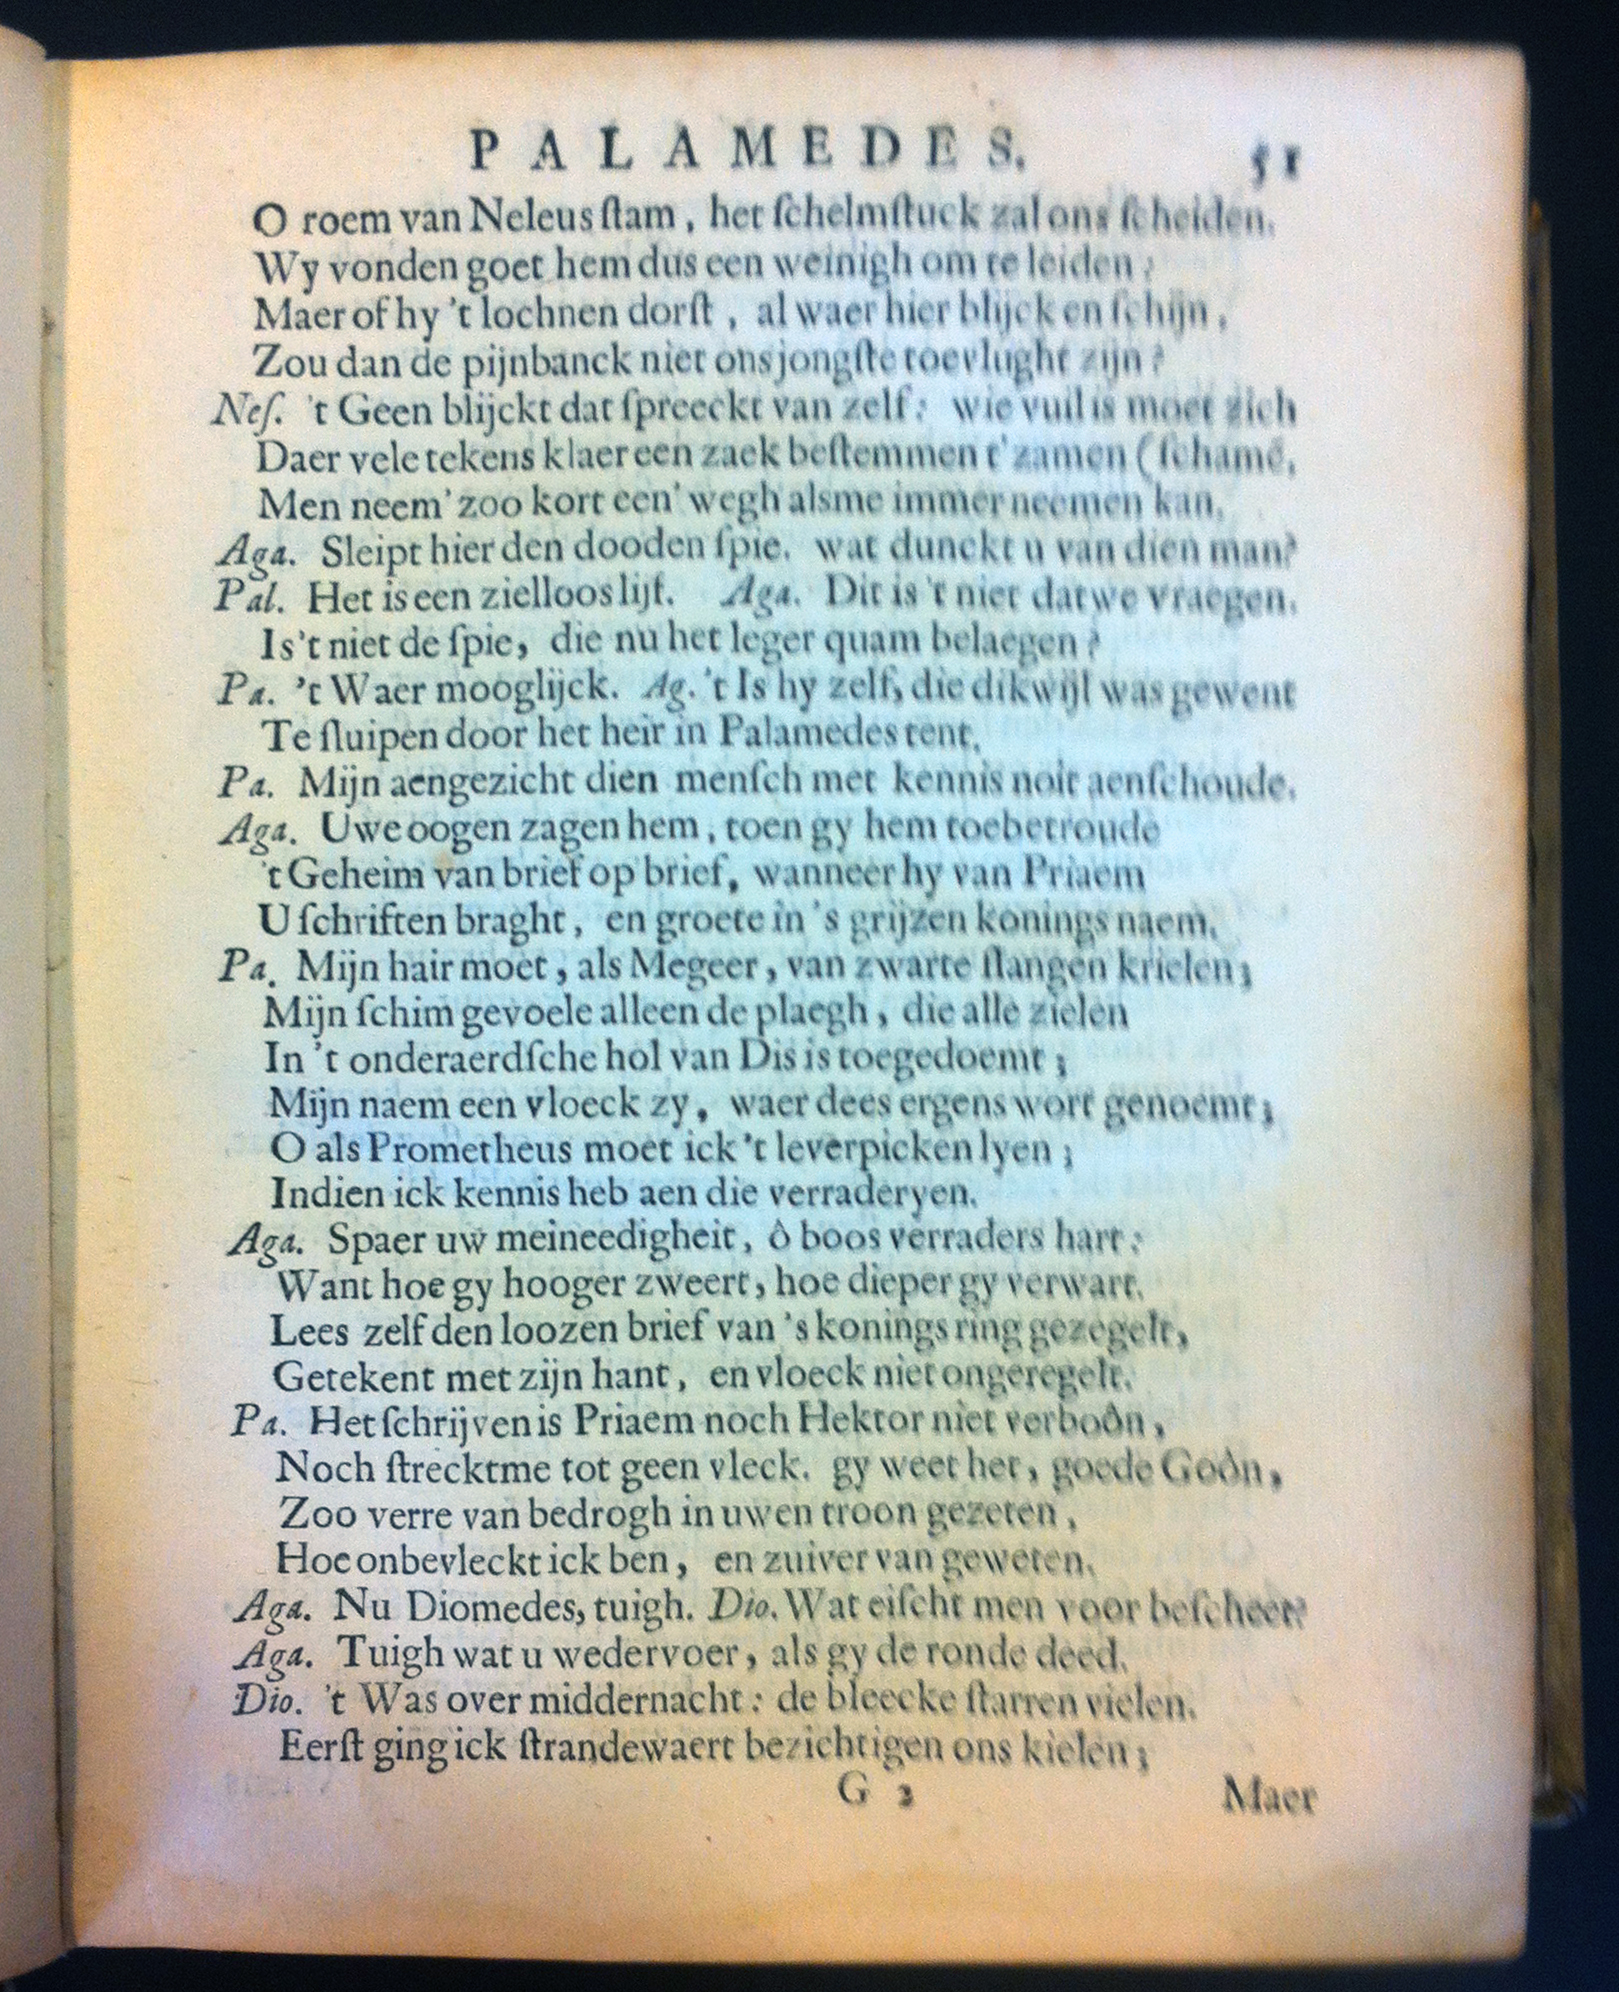 PALAMEDES. 51
O roem van Neleus ſtam, het ſchelmſtuck zal ons ſcheiden.
Wy vonden goet hem dus een weinigh om te leiden:
Maer of hy 't lochnen dorſt, al waer hier blijck en ſchijn,
Zou dan de pijnbanck niet ons jongſte toevlught zijn?
Neſ. 't Geen blijckt dat ſpreeckt van zelf: wie vuil is moet zich
Daer vele tekens klaer een zaek beſtemmen t'zamen (ſchamē,
Men neem' zoo kort een' wegh alsme immer neemen kan.
Aga. Sleipt hier den dooden ſpie. wat dunckt u van dien man?
Pal. Het is een ziellooslijf. Aga. Dit is 't niet datwe vraegen.
Is't niet de ſpie, die nu het leger quam belaegen?
Pa. 't Waer mooglijck. Ag. 't Is hy zelf, die dikwijl was gewent
Te ſluipen door het heir in Palamedes tent.
Pa. Mijn aengezicht dien menſch met kennis noit aenſchoude.
Aga. Uwe oogen zagen hem, toen gy hem toebetroude
't Geheim van brief op brief, wanneer hy van Priaem
U ſchriften braght, en groete in 's grijzen konings naem.
Pa. Mijn hair moet, als Megeer, van zwarte ſlangen krielen;
Mijn ſchim gevoele alleen de plaegh, die alle zielen
In 't onderaerdſche hol van Dis is toegedoemt;
Mijn naem een vloeck zy, waer dees ergens wort genoemt;
O als Prometheus moet ick 't leverpicken lyen;
Indien ick kennis heb aen die verraderyen.
Aga. Spaer uw meineedigheit, ô boos verraders hart:
Want hoe gy hooger zweert, hoe dieper gy verwart.
Lees zelf den loozen brief van 's konings ring gezegelt,
Getekent met zijn hant, en vloeck niet ongeregelt.
Pa. Het ſchrijven is Priaem noch Hektor niet verboôn,
Noch ſtrecktme tot geen vleck. gy weet het, goede Goôn,
Zoo verre van bedrogh in uwen troon gezeten,
Hoe onbevleckt ick ben, en zuiver van geweten.
Aga. Nu Diomedes, tuigh. Dio. Wat eiſcht men voor beſcheet?
Aga. Tuigh wat u wedervoer, als gy de ronde deed.
Dio. 't Was over middernacht: de bleecke ſtarren vielen.
Eerſt ging ick ſtrandewaert bezichtigen ons kielen;
G 2 Maer